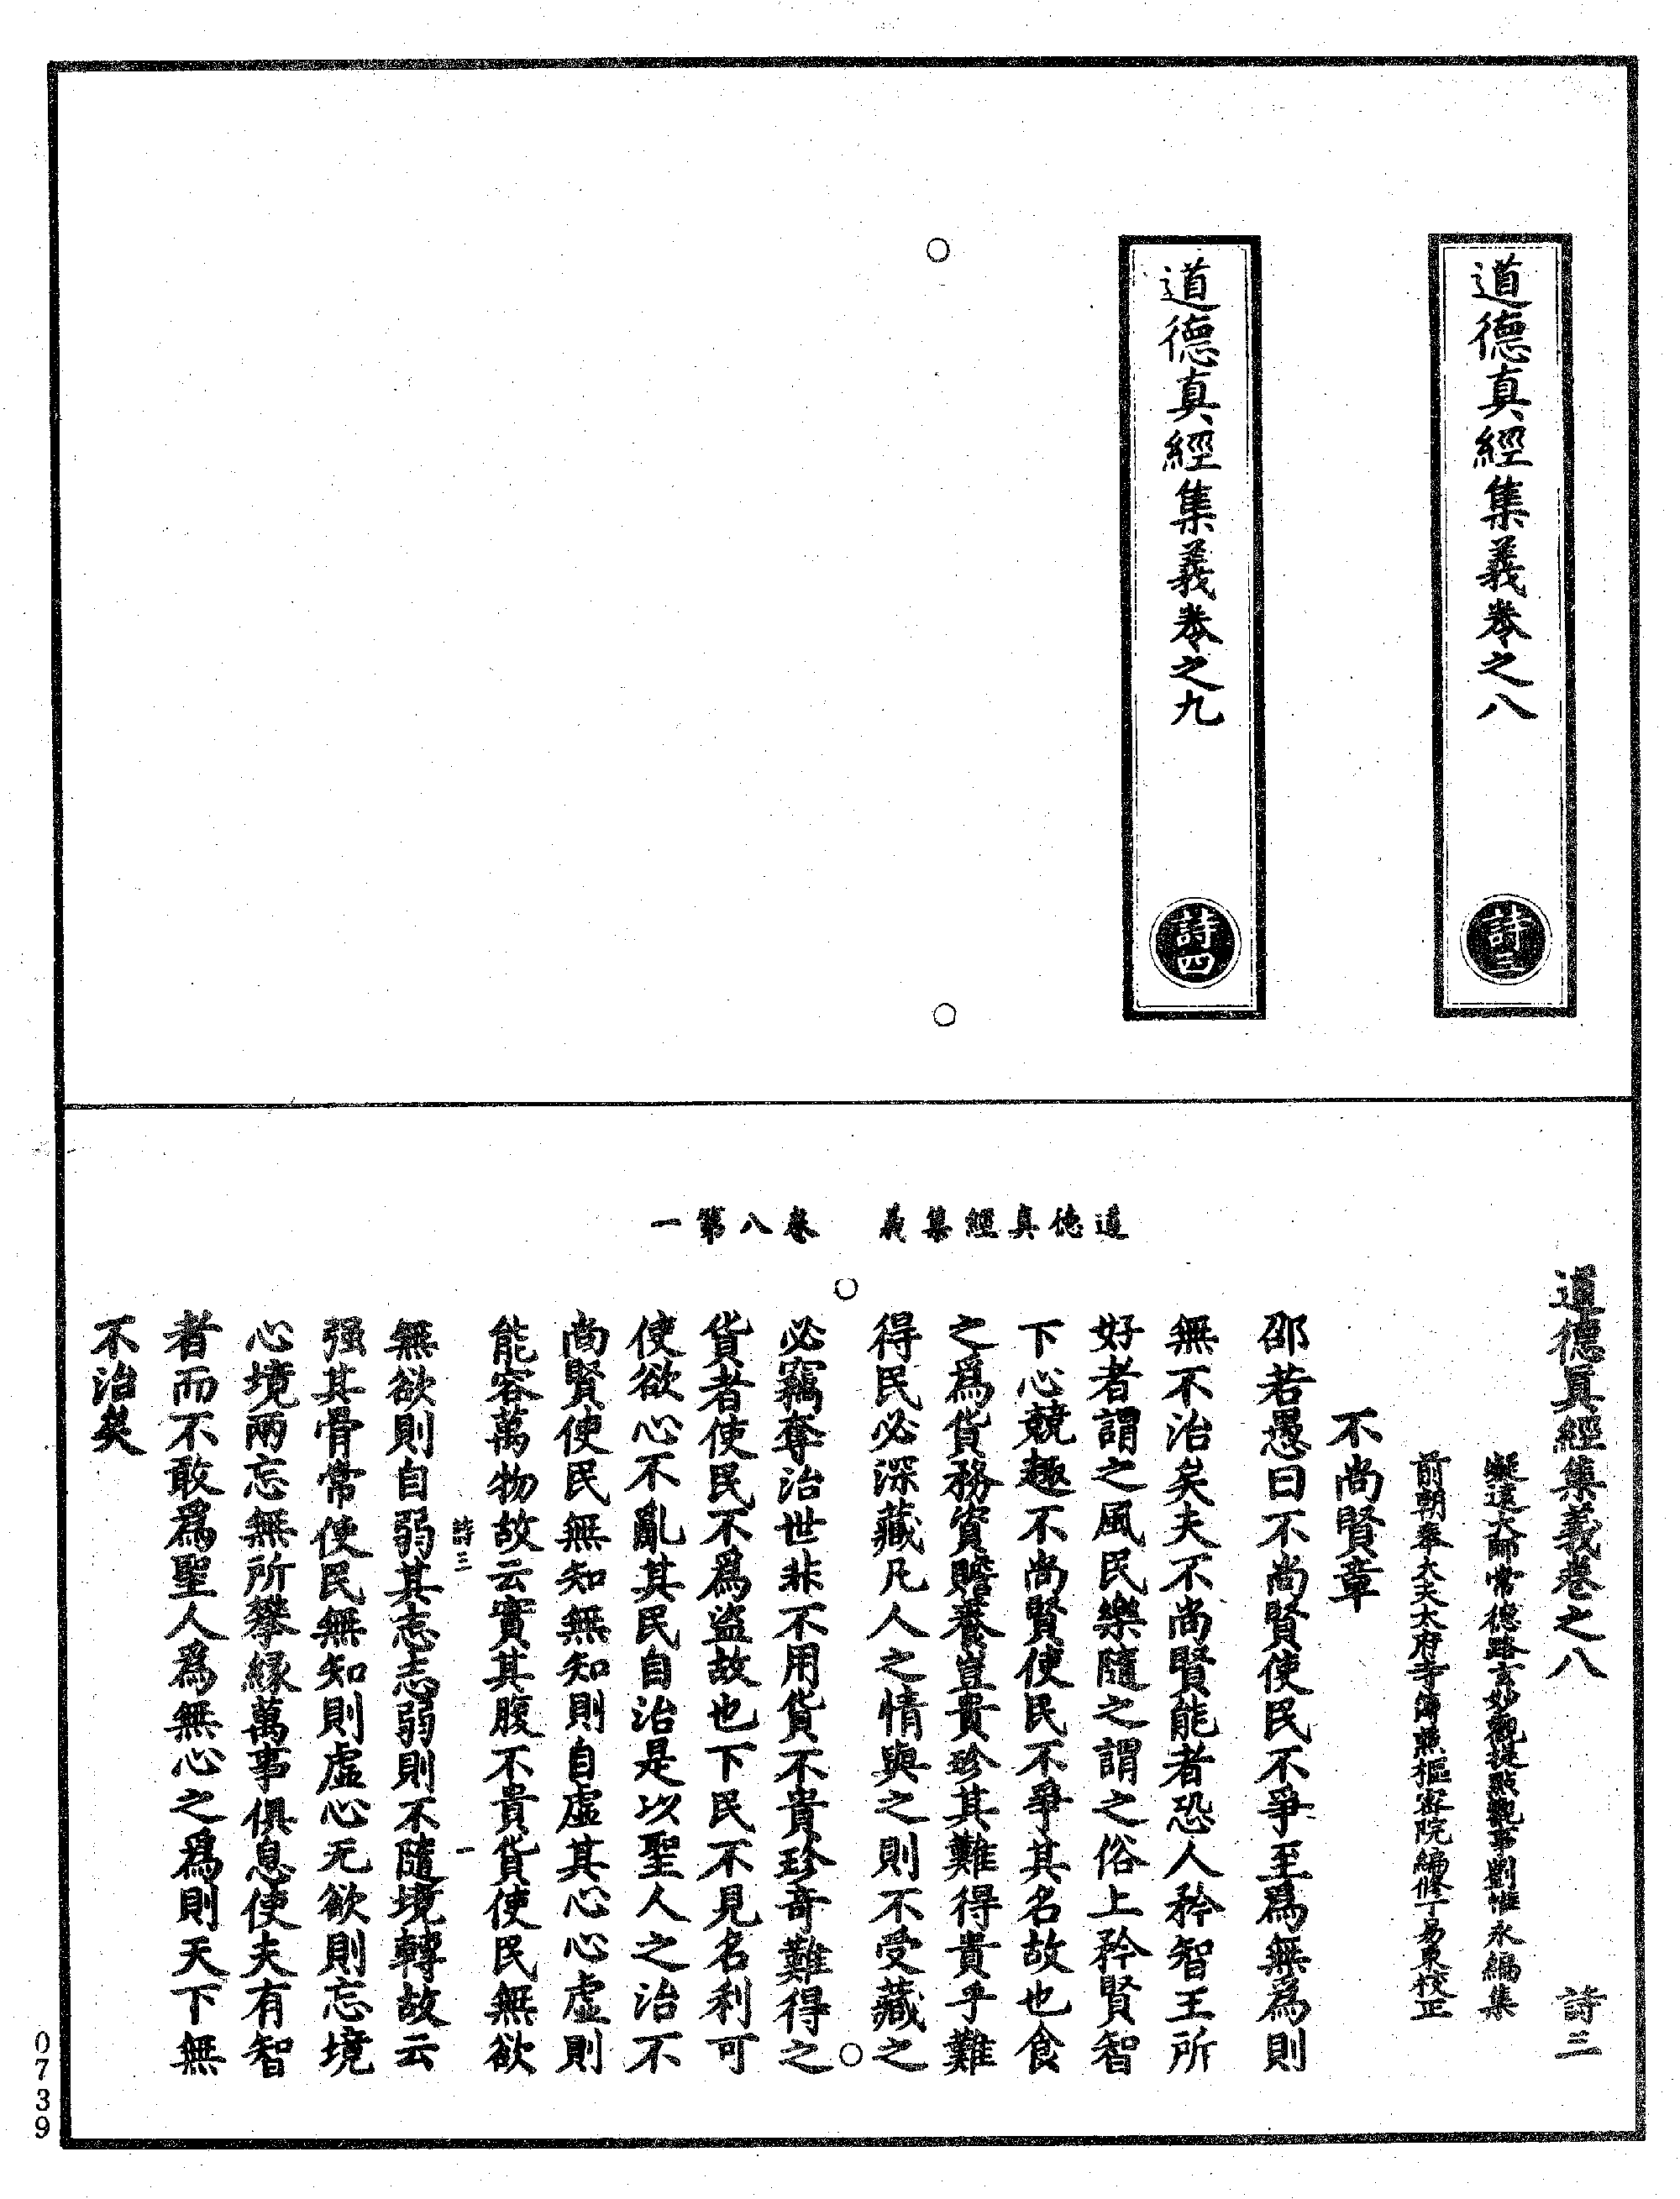 道德真經集義卷之八
詩三
道德真經集義卷之九
詩四
道德真經集義　卷八第一
道德真經集義卷之八　詩三
凝遠大師常德路玄妙觀提點觀事劉惟永編集
前朝奉大夫太府寺簿兼樞密院編修丁易東校正
不尚賢章
邵若愚曰不尚賢使民不爭至爲無爲則
無不治矣夫不尚賢能者恐人矜智王所
好者謂之風民樂隨之謂之俗上矜賢智
下心競趣不尚賢使民不爭其名故也食
之爲貨務資贍養豈貴珍其難得貴乎難
得民必深藏凡人之情與之則不受藏之
必竊奪治世非不用貨不貴珍奇難得之
貨者使民不爲盜故也下民不見名利可
使欲心不亂其民自治是以聖人之治不
尚賢使民無知無知則自虛其心心虛則
能容萬物故云實其腹不貴貨使民無欲
詩三　一
無欲則自弱其志志弱則不隨境轉故云
强其骨常使民無知則虛心无欲則忘境
心境兩忘無所攀緣萬事俱息使夫有智
者而不敢爲聖人爲無心之爲則天下無
不治矣
0739